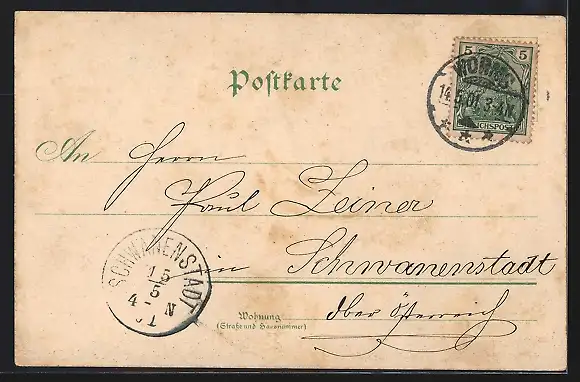 5 5
WORMS
14.5.01. 3-4N.
REICHSPOST
Postkarte
An Herrn
Paul Zeiner
in Schwanenstadt
Ober Österreich
Wohnung
(Straße und Hausnummer)
SCHWANENSTADT
15
5
4 - N
01